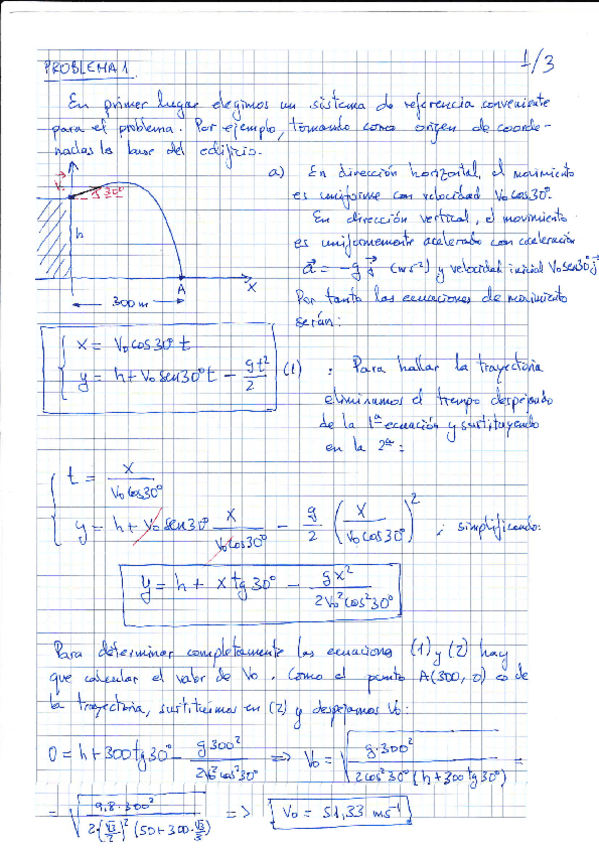 PROBLEMA 1.
1/3
En primer lugar elegimos un sistema de referencia conveniente
para el problema. Por ejemplo, tomando como origen de coorde-
nadas la base del edificio.
a) En dirección horizontal, el movimiento
es uniforme con velocidad V₀cos30º.
En dirección vertical, el movimiento
es uniformemente acelerado con aceleración
a⃗ = -g j⃗ (ms⁻²) y velocidad inicial V₀sen30º j⃗
Por tanto las ecuaciones de movimiento
serán:
Y
V⃗₀
30º
h
A
X
300 m
x = V₀cos30º t
y = h + V₀ sen30º t - gt²/2 (1)
Para hallar la trayectoria
eliminamos el tiempo despejando
de la 1ª ecuación y sustituyendo
en la 2ª:
t = x / V₀cos30º
y = h + V₀ sen30º x/V₀cos30º - g/2 (x/V₀cos30º)² ; simplificando:
y = h + x tg30º - gx²/2V₀²cos²30º
Para determinar completamente las ecuaciones (1) y (2) hay
que calcular el valor de V₀. Como el punto A(300, 0) es de
la trayectoria, sustituimos en (2) y despejamos V₀:
0 = h + 300tg30º - g300²/2V₀²cos²30º => V₀ = √(g·300²/2cos²30º(h+300tg30º)) =
= √(9,8·300²/2·(√3/2)²(50+300·√3/3)) => V₀ = 51,33 ms⁻¹